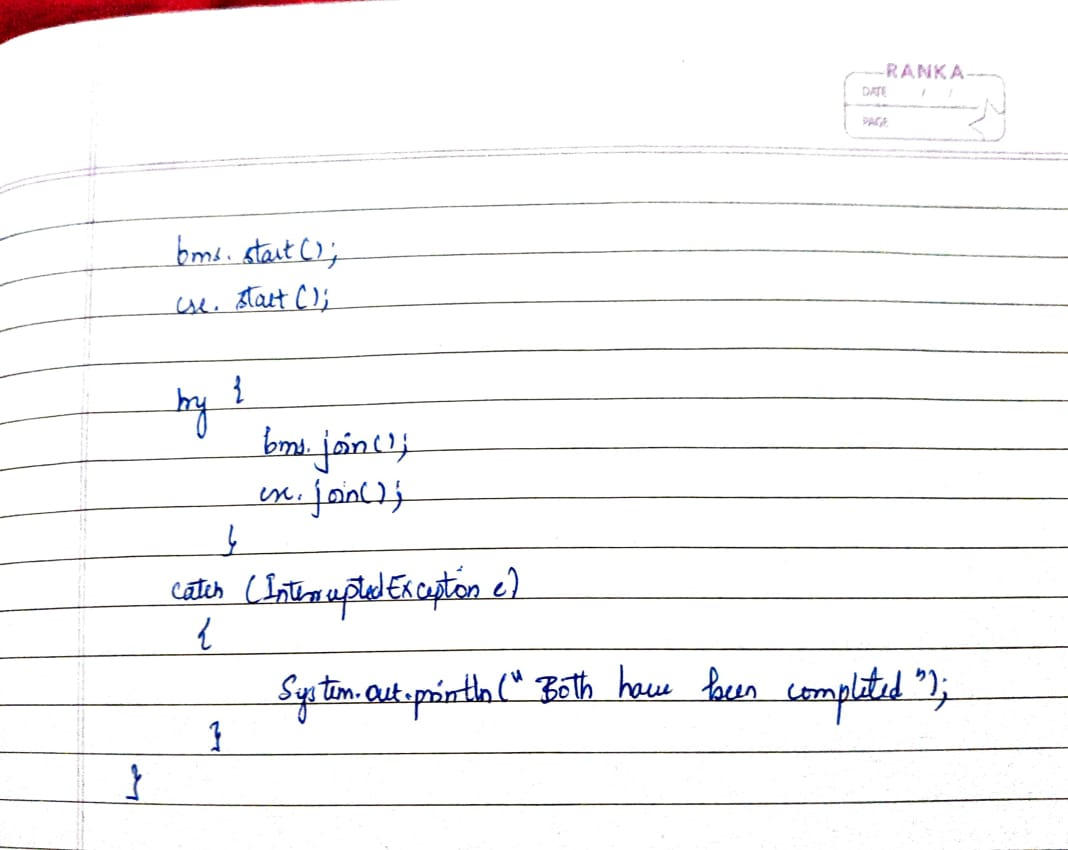 RANKA
DATE / /
PAGE
bms. start();
cse. start();
try {
bms. join();
cse. join();
}
catch (InterruptedException e)
{
System.out.println(" Both have been completed ");
}
}